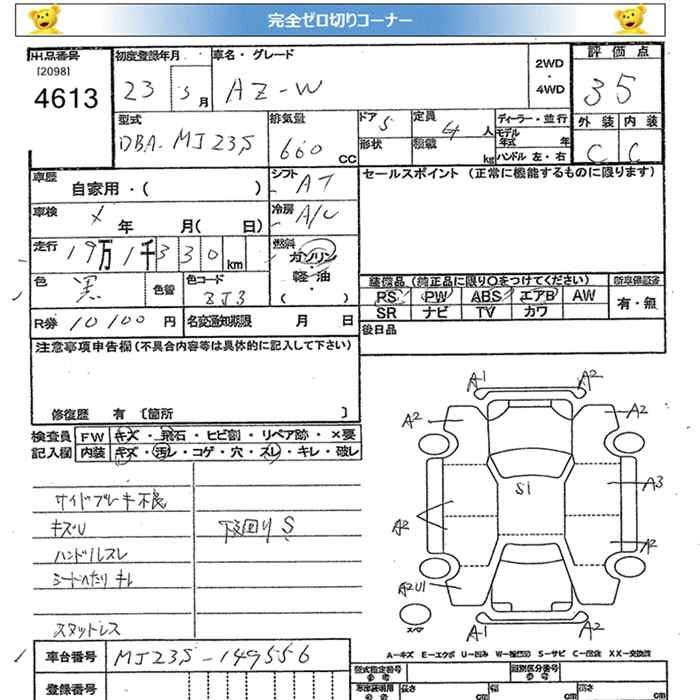 完全ゼロ切りコーナー
出品番号
[2098]
4613
初度登録年月
23 5月
車名・グレード
AZ-W
2WD
・
4WD
評価点
35
型式
DBA-MJ23S
排気量
660 CC
ドア 5
形状
定員
4 人
積載 kg
ディーラー・並行
モデル年式 年
ハンドル 左・右
外装 内装
C C
車歴 自家用・( )
シフト AT
セールスポイント (正常に機能するものに限ります)
車検 メ 年 月( 日)
冷房 A/C
走行 19万1千330km
燃料 ガソリン
・
軽・油
( )
色 黒
色替
色コード ZJ3
装備品(純正品に限り○をつけてください)
PS PW ABS エアB AW
SR ナビ TV カワ
新車保証書
有・無
R券 10100 円
名変通知期限 月 日
後日品
注意事項申告欄(不具合内容等は具体的に記入して下さい)
修復歴 有 [箇所 ]
検査員
記入欄
FW キズ・飛石・ヒビ割・リペア跡・×要
内装 キズ・汚レ・コゲ・穴・スレ・キレ・破レ
サイドブレーキ不良
キズU
下回りS
ハンドルスレ
シートへたり キレ
スタッドレス
A1 A2
A2 A2
S1 A3
A2
A2
A2U1
スペア
A1 A2
A-キズ E-エクボ U-凹み W-補修跡 S-サビ C-腐食 XX-交換済
車台番号 MJ23S-149556
登録番号
型式指定番号
参考
類別区分番号
参考
車体装備用
参考
長さ cm
幅 cm
高さ cm